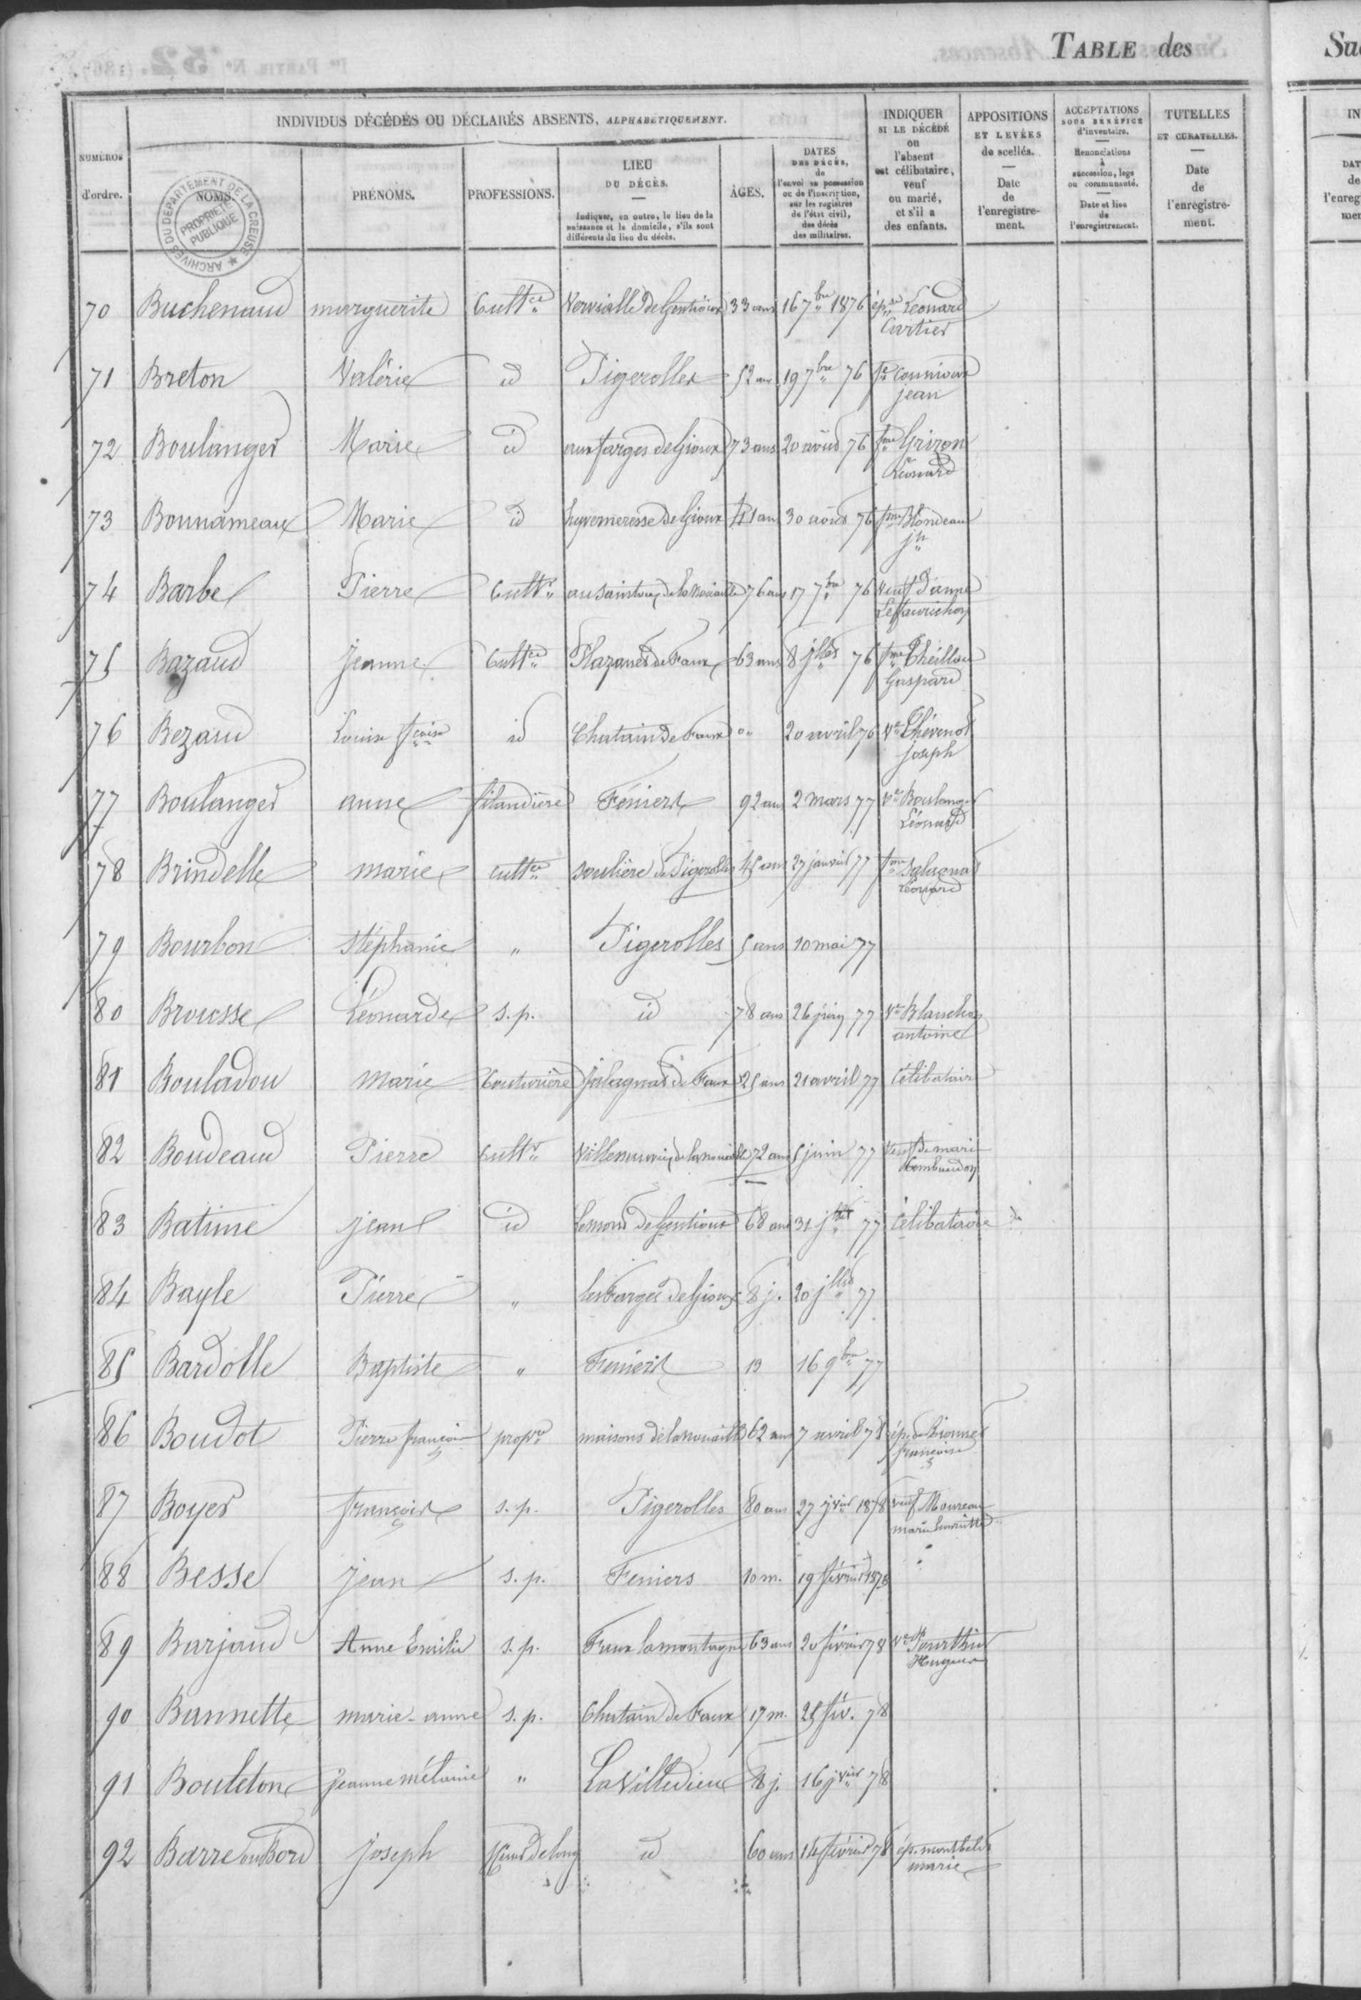 TABLE des
INDIVIDUS DÉCÉDÉS OU DÉCLARÉS ABSENTS, ALPHABÉTIQUEMENT.
NUMÉROS d'ordre.
NOMS.
PRÉNOMS.
PROFESSIONS.
LIEU DU DÉCÈS.
Indiquer, en outre, le lieu de la naissance et le domicile, s'ils sont différents du lieu du décès.
ÂGES.
DATES DES DÉCÈS, de l'envoi en possession ou de l'inscription, sur les registres de l'état civil, des décès des militaires.
INDIQUER SI LE DÉCÉDÉ ou l'absent est célibataire, veuf ou marié, et s'il a des enfants.
APPOSITIONS ET LEVÉES de scellés.
Date de l'enregistrement.
ACCEPTATIONS SOUS BÉNÉFICE d'inventaire.
Renonciations à succession, legs ou communauté.
Date et lieu de l'enregistrement.
TUTELLES ET CURATELLES.
Date de l'enregistrement.
ARCHIVES DU DÉPARTEMENT DE LA CREUSE
PROPRIÉTÉ PUBLIQUE
70 Buchenaud marguerite Cultce Vervialle de Gentioux 33 ans 16 7bre 1876 épse Léonard Cartier
71 Breton Valérie id Pigerolles 52 ans 19 7bre 76 jean
72 Boulanger Marie id aux farges de Gioux 73 ans 20 août 76 fme Grizon Léonard
73 Bonnameaux Marie id de Gioux 41 ans 30 août 76 fme Blondeau jn
74 Barbe Pierre Cultr 76 ans 17 7bre 76 Veuf d'anne
75 Bazaud Jeanne Cultce Plazanet de Faux 63 ans 8 jllet 76 fme Theillou Gaspard
76 Bezaud Louise fçoise id Chatain de Faux " 20 avril 76 Ve Thévenot joseph
77 Boulanger anne filandière Féniers 92 ans 2 mars 77 Ve Boulanger Léonard
78 Brindelle marie cultce soulière de Pigerolles 45 ans 27 janvier 77 fme Salagnac Léonard
79 Bourbon stéphanie " Pigerolles 5 ans 10 mai 77
80 Brousse Léonarde s.p. id 78 ans 26 juin 77 Ve Blanchon antoine
81 Bouladou marie Couturière Salagnat de Faux 25 ans 21 avril 77 Célibataire
82 Boudeaud Pierre Cultr de lanouaille 72 ans 5 juin 77 Veuf de marie
83 Batime jean id Lemons de Gentioux 68 ans 31 77 Célibataire
84 Bayle Pierre " les Farges de Gioux 8 j. 20 jllet 77
85 Bardolle Baptiste " Féniers 13 16 9bre 77
86 Boudot Pierre françois propre maisons de lanouaille 62 ans 7 avril 78 ép. de Dionnet françoise
87 Boyer françois s.p. Pigerolles 80 ans 27 jvier 1878 veuf Moureau marie henriette
88 Besse jean s.p. Feniers 10 m. 19 février 1878
89 Barjaud Anne Emilie s.p. Faux lamontagne 63 ans 20 février 78 Ve Pourthier Hugues
90 Bannette marie-anne s.p. Chatain de Faux 17 m. 25 fév. 78
91 Bouleton jeanne mélanie " La Villedieu 8 j. 16 jvier 78
92 Barre ou Bord joseph scieur de long id 60 ans 14 février 78 ép. marie